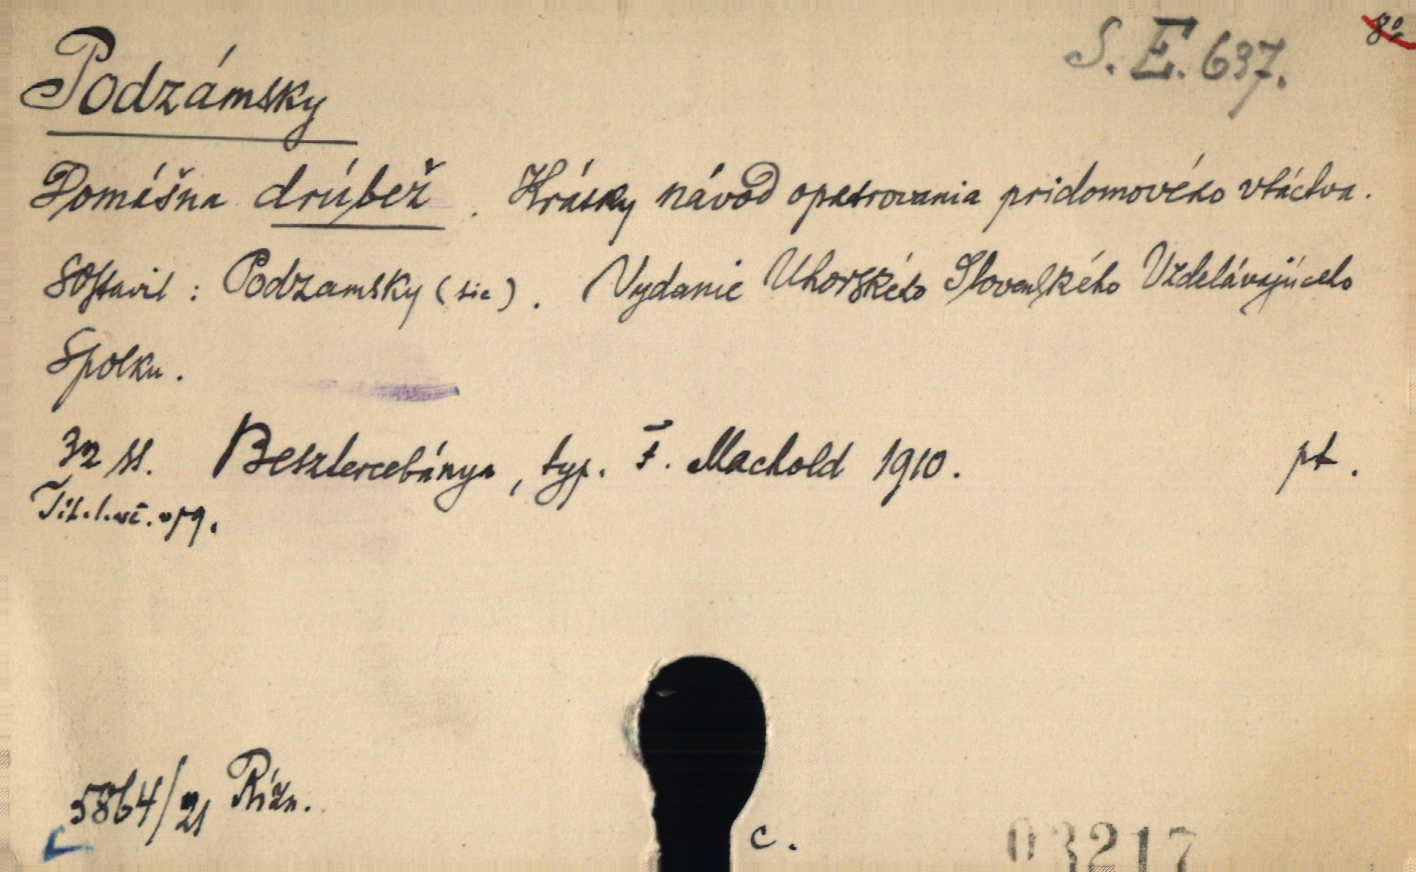 8°
S. E. 637.
Podzámsky
Domášna drúbež. Krátky návod opatrovania pridomového vtáctva.
Sostavil: Podzamsky (sic). Vydanie Uhorského Slovenského Vzdelávajúceho
Spolku.
32 ss. Beszterczebánya, typ. F. Machold 1910. pt.
Tit. l. u. opg.
5864/21 Rízn.
c.
03217